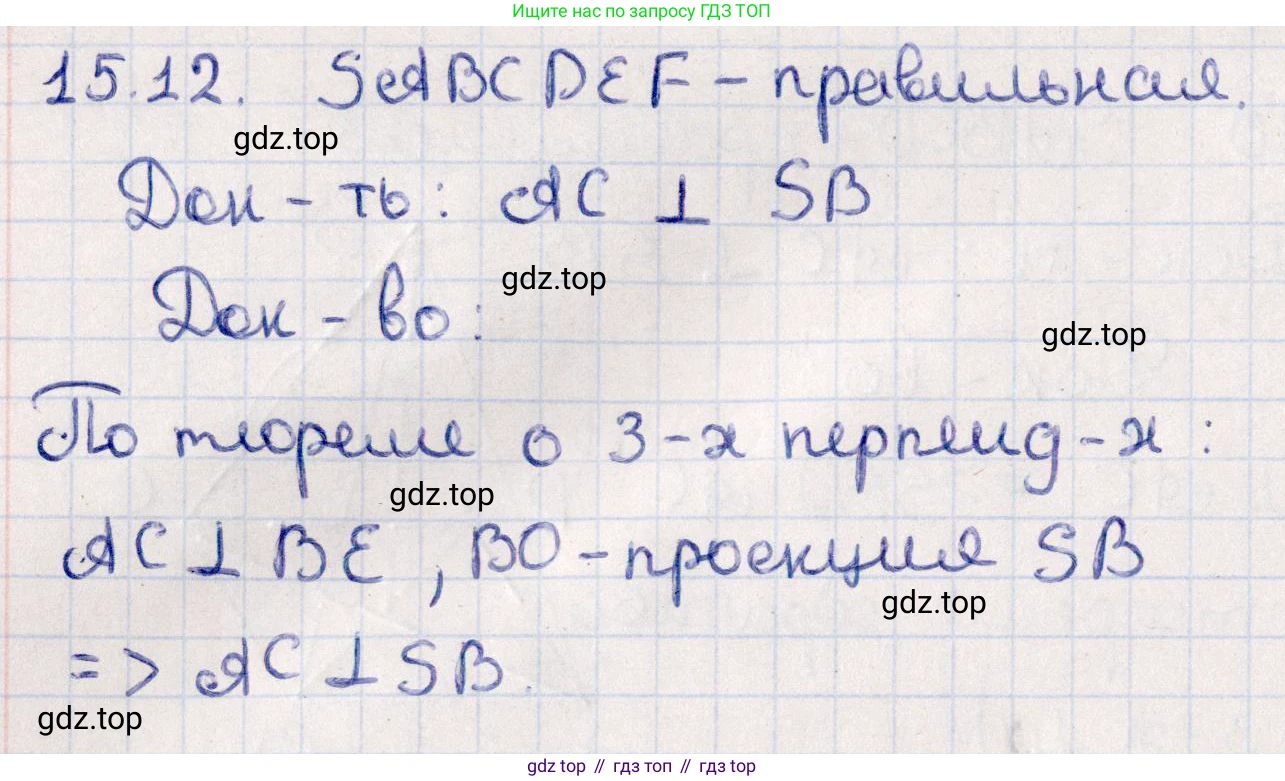 Ищите нас по запросу ГДЗ ТОП
15.12. SABCDEF - правильная.
gdz.top
Док - ть: AC ⊥ SB
gdz.top
Док - во:
gdz.top
По теореме о 3-х перпенд-х:
gdz.top
AC ⊥ BE, BO - проекция SB
gdz.top
=> AC ⊥ SB.
gdz.top
gdz top // гдз топ // гдз top